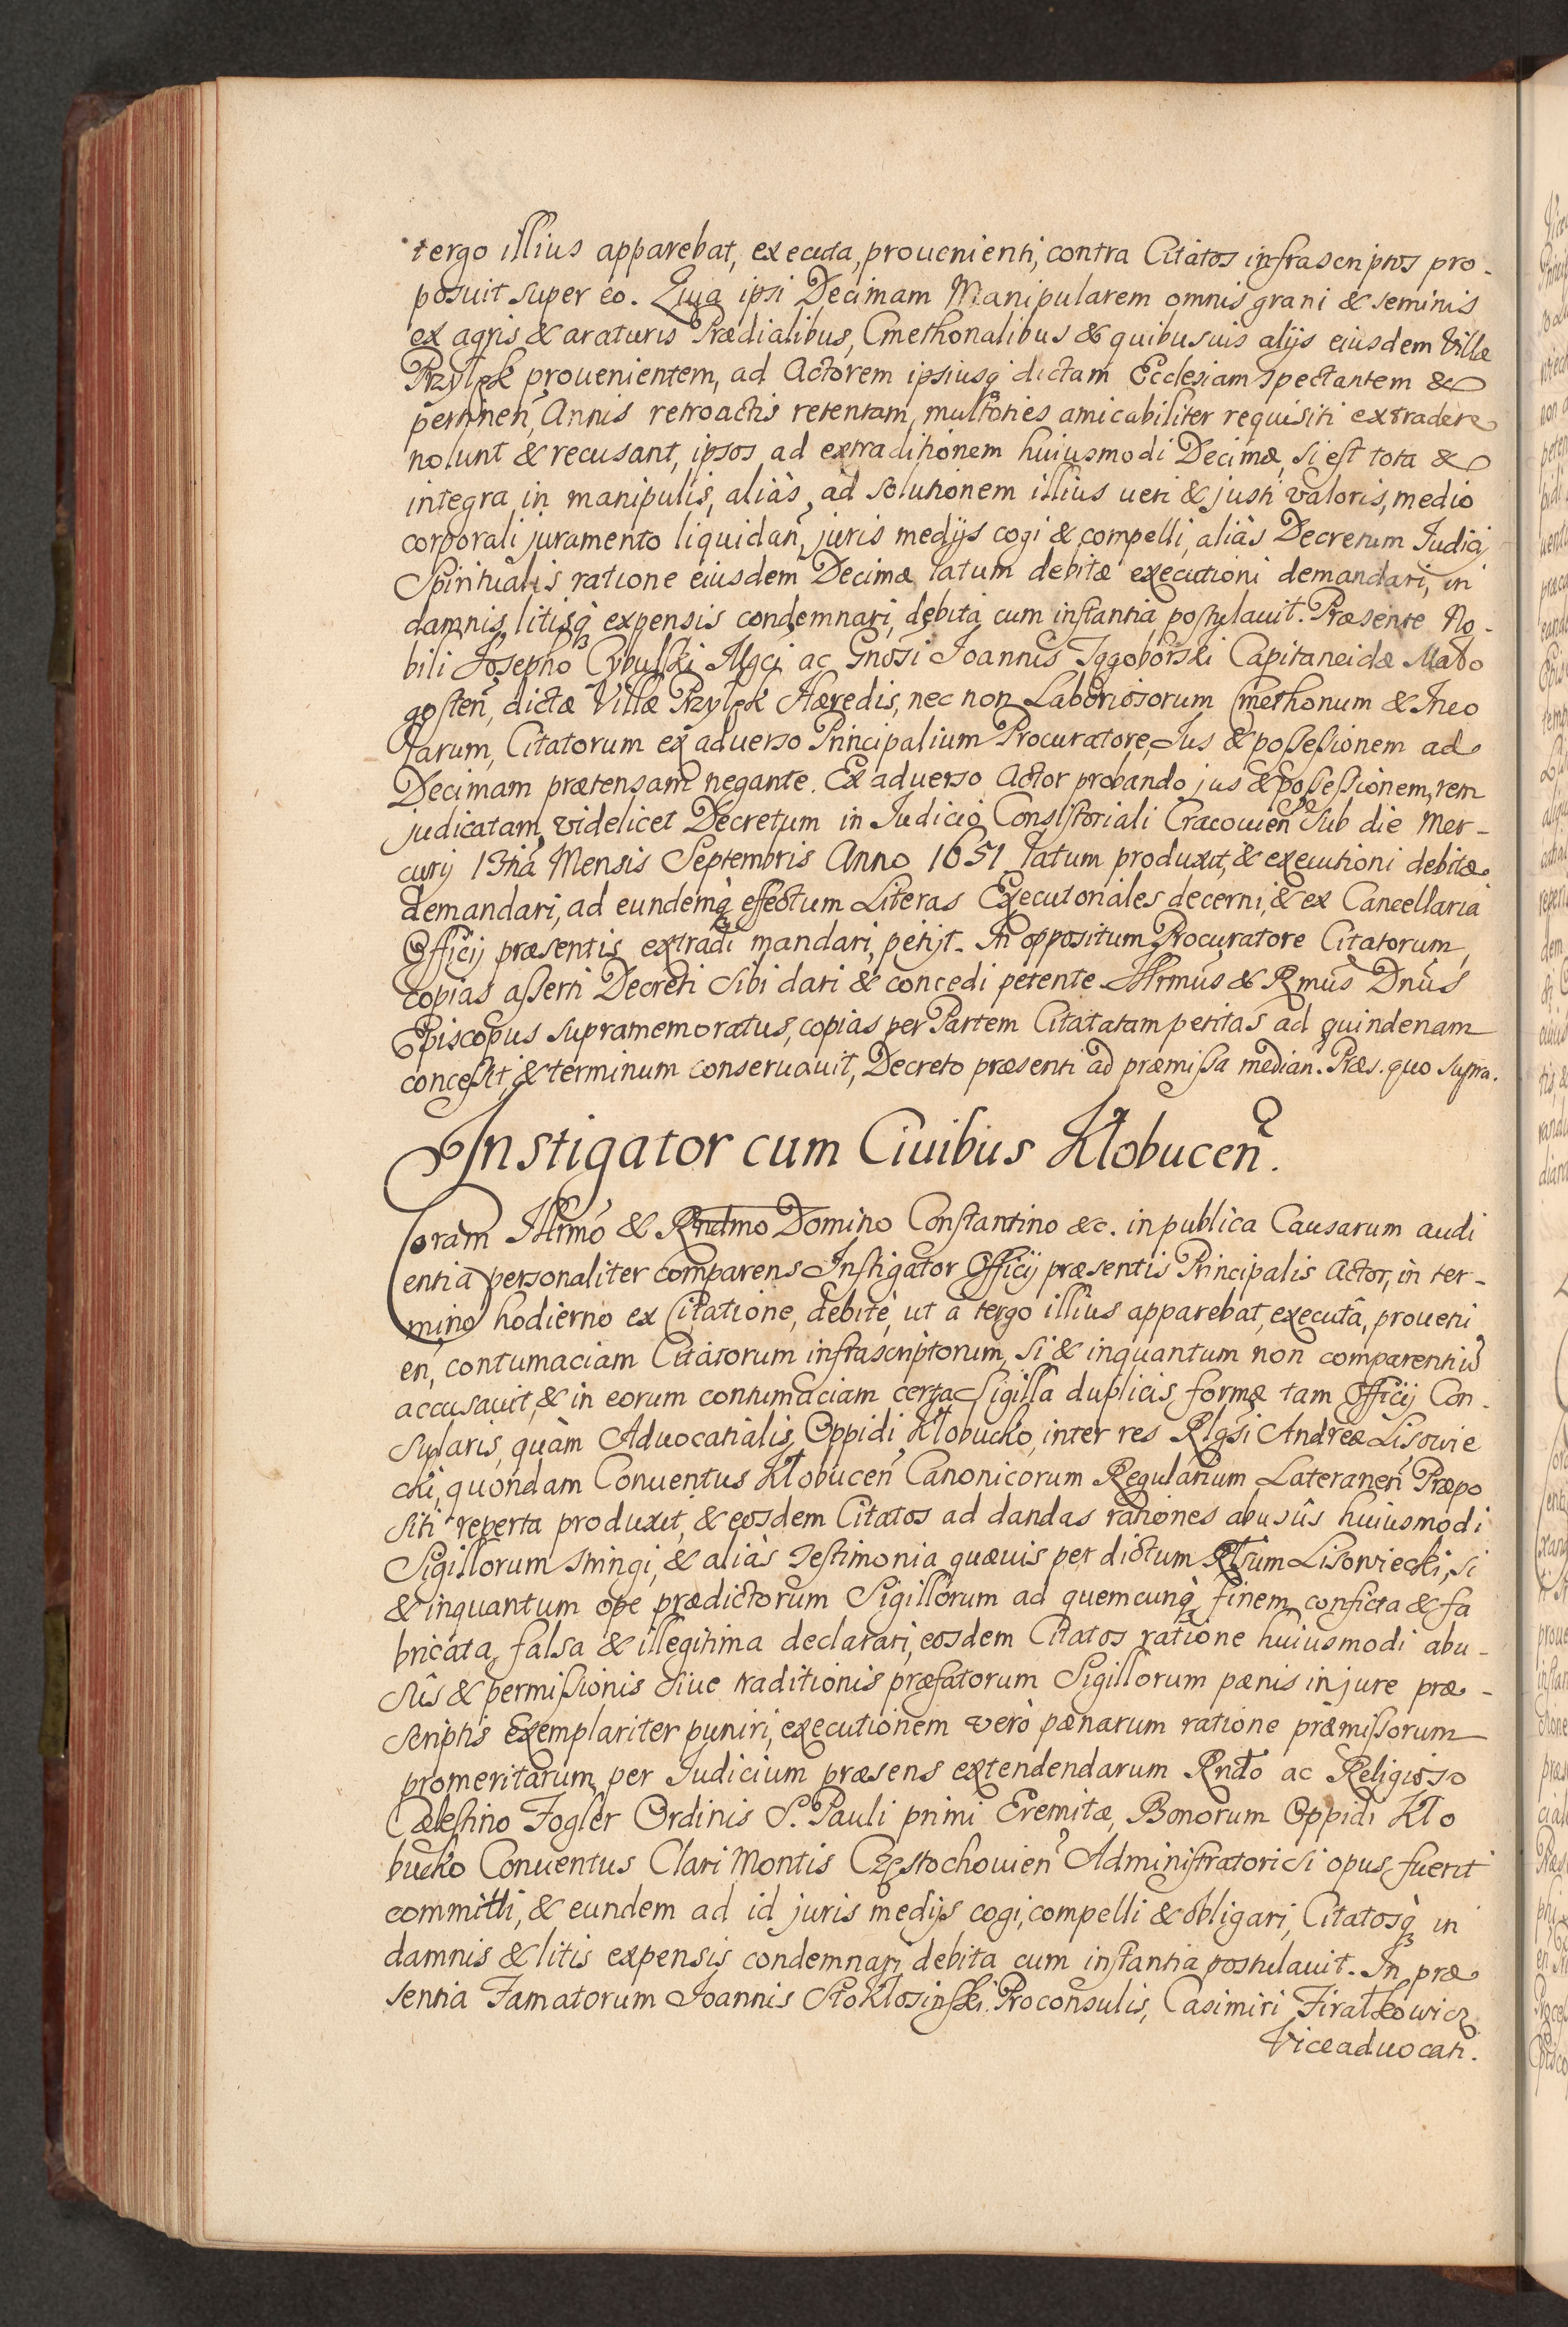 tergo illius apparebat, executa, prouenienti, contra Citatos infrascriptos pro-
posuit super eo. Quia ipsi Decimam Manipularem omnis grani & seminis
ex agris & araturis Prædialibus, Cmethonalibus & quibusuis alijs eiusdem Villæ
Przyłęk prouenientem, ad Actorem ipsiusq̃ dictam Ecclesiam spectantem &
pertinen̄, Annis retroactis retentam, multoties amicabiliter requisiti extradere
nolunt & recusant, ipsos ad extraditionem huiusmodi Decimæ, si est tota &
integra in manipulis, aliàs ad solutionem illius ueri & justi valoris, medio
corporali juramento liquidan̄, juris medijs cogi & compelli, aliàs Decretum Judicij
Spiritualis ratione eiusdem Decimæ latum debitæ executioni demandari, in
damnis litisq̃ expensis condemnari, debita cum instantia postulauit. Præsente No-
bili Josepho Cybulski Mgci ac Gnosi Joannis Jggoborski Capitaneidæ Mało
gosten̄, dictæ Villæ Przyłęk Hæredis, nec non Laboriosorum Cmethonum & Jnco
larum, Citatorum ex aduerso Principalium Procuratore, Jus & possessionem ad
Decimam prætensam negante. Ex aduerso Actor probando jus & possessionem, rem
judicatam, videlicet Decretum in Judicio Consistoriali Cracouien̄ sub die Mer-
curij 13tia Mensis Septembris Anno 1651 latum produxit, & executioni debitæ
demandari, ad eundemq̃ effectum Literas Executoriales decerni, & ex Cancellaria
Officij præsentis extradi mandari, petijt. In oppositum Procuratore Citatorum,
copias asserti Decreti sibi dari & concedi petente Jllrmus & Rmus Dnus
Episcopus supramemoratus, copias per Partem Citatatam petitas ad quindenam
concessit, & terminum conseruauit, Decreto præsenti ad præmissa median̄. Præs. quo supra.
Instigator cum Ciuibus Kłobucen̄.
Coram Jllrmo & Rndmo Domino Constantino &c. in publica Causarum audi
entia personaliter comparens Instigator Officij præsentis Principalis Actor, in ter-
mino hodierno ex Citatione, debitè, ut à tergo illius apparebat, executâ, proueni
en, contumaciam Citatorum infrascriptorum, si & inquantum non comparentiũ
accusauit, & in eorum contumaciam certa Sigilla duplicis formæ tam Officij Con-
sularis, quàm Aduocatialis, Oppidi Kłobucko, inter res Rlgsi Andreæ Lisowie
cki, quondam Conuentus Kłobucen̄ Canonicorum Regularium Lateranen̄ Præpo
siti reperta produxit, & eosdem Citatos ad dandas rationes abusûs huiusmodi
Sigillorum stringi, & aliàs Testimonia quæuis per dictum Rlsum Lisowiecki, si
& inquantum ope prædictorum Sigillorum ad quemcunq̃ finem conficta & fa
bricata, falsa & illegitima declarari, eosdem Citatos ratione huiusmodi abu-
sûs & permissionis siue traditionis præfatorum Sigillorum pænis in jure præ-
scriptis exemplariter puniri, executionem verò pænarum ratione præmissorum
promeritarum, per Judicium præsens extendendarum Rndo ac Religioso
Cælestino Fogler Ordinis S. Pauli primi Eremitæ, Bonorum Oppidi Kło
bucko Conuentus Clari Montis Częstochouien̄ Administratori si opus fuerit
committi, & eundem ad id juris medijs cogi, compelli & obligari, Citatosq̃ in
damnis & litis expensis condemnari debita cum instantia postulauit. In præ
sentia Famatorum Joannis Stokłosinski Proconsulis, Casimiri Firałkowicz
Viceaduocati.